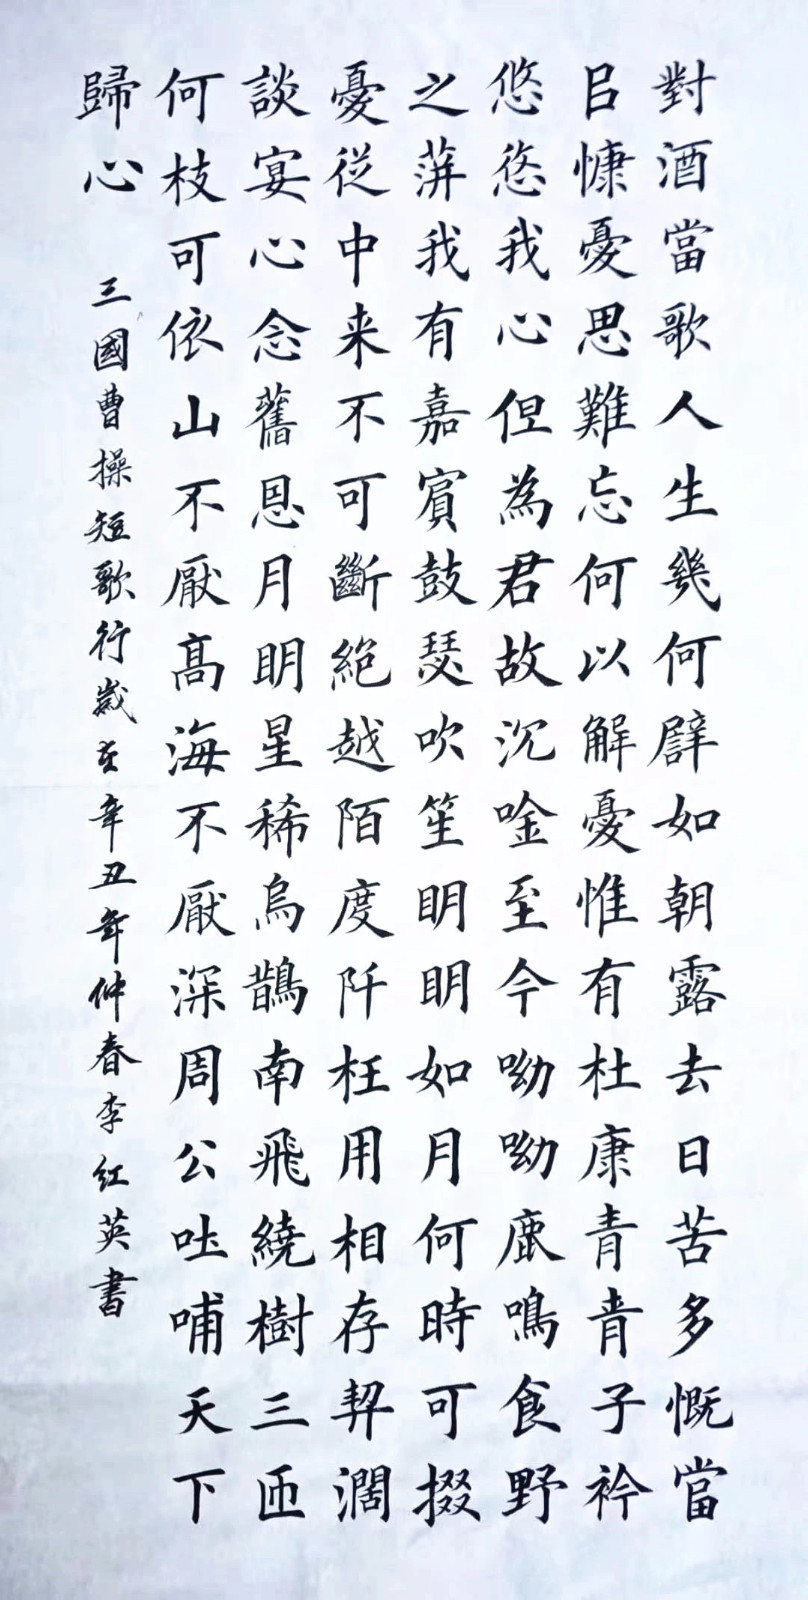 對酒當歌人生幾何譬如朝露去日苦多慨當
㠯慷憂思難忘何以解憂惟有杜康青青子衿
悠悠我心但為君故沉唫至今呦呦鹿鳴食野
之蓱我有嘉賓鼓瑟吹笙明明如月何時可掇
憂從中来不可斷絕越陌度阡枉用相存契濶
談宴心念舊恩月明星稀烏鵲南飛繞樹三匝
何枝可依山不厭高海不厭深周公吐哺天下
歸心
三國曹操短歌行歲在辛丑年仲春李红英書